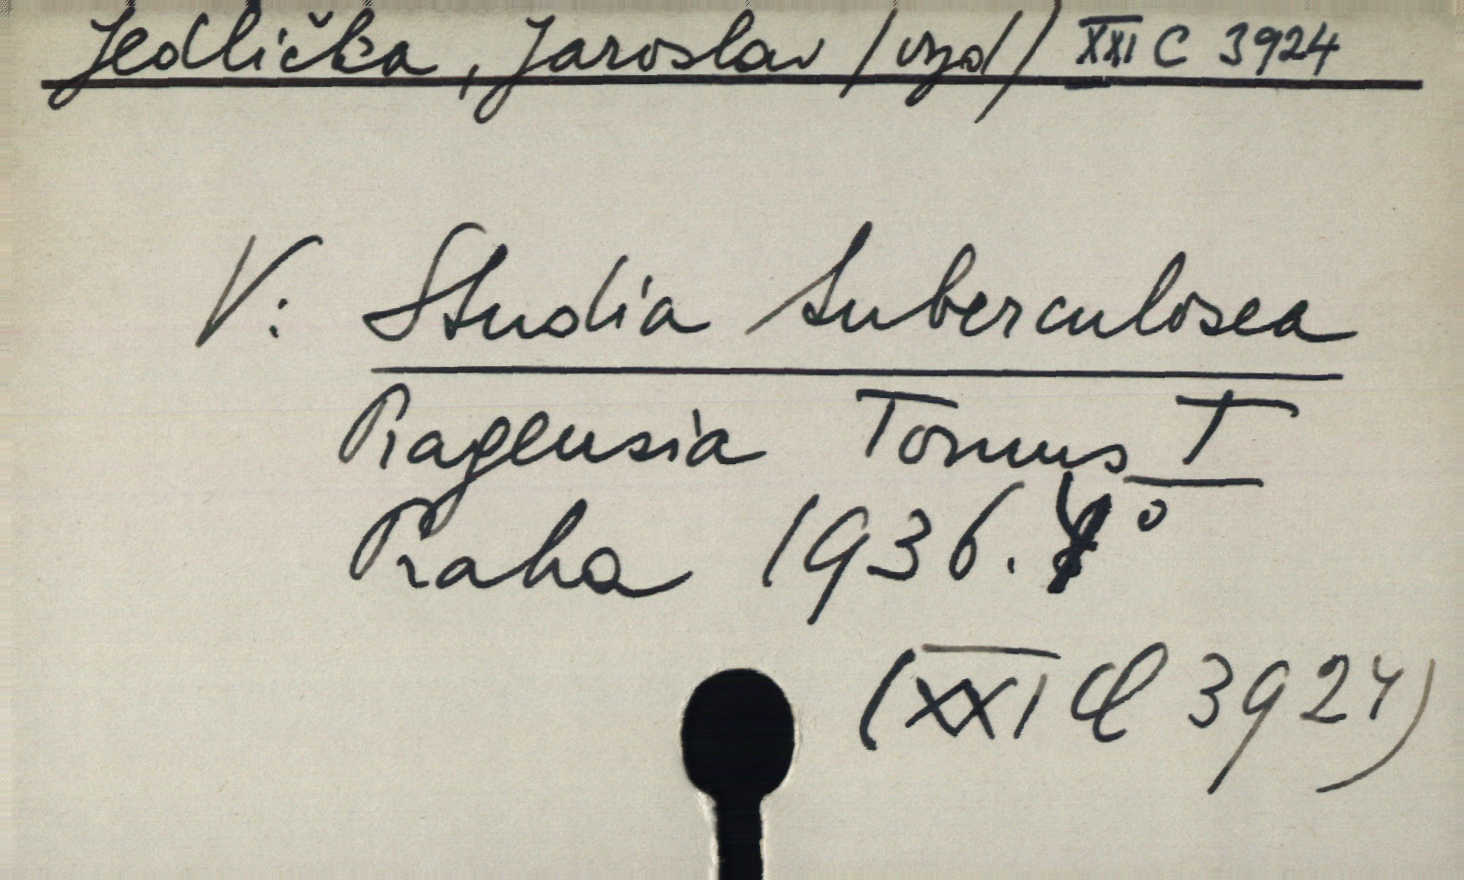 Jedlička, Jaroslav /vyd/ XXI C 3924
V: Studia tuberculosea
Pragensia Tomus I
Praha 1936. 8°
(XXI C 3924)